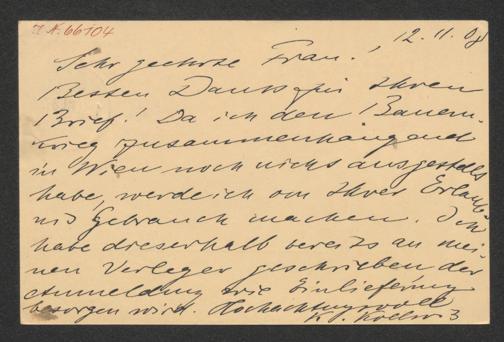 I.N. 66104
12. 11. 08
Sehr geehrte Frau!
Besten Dank für Ihren
Brief! Da ich den Bauern-
krieg zusammenhängend
in Wien noch nicht ausgestellt
habe, werde ich von Ihrer Erlaub-
nis Gebrauch machen. Ich
habe dieserhalb bereits an mei-
nen Verleger geschrieben der
Anmeldung wie Einlieferung
besorgen wird. Hochachtungsvoll
K. Kollwitz